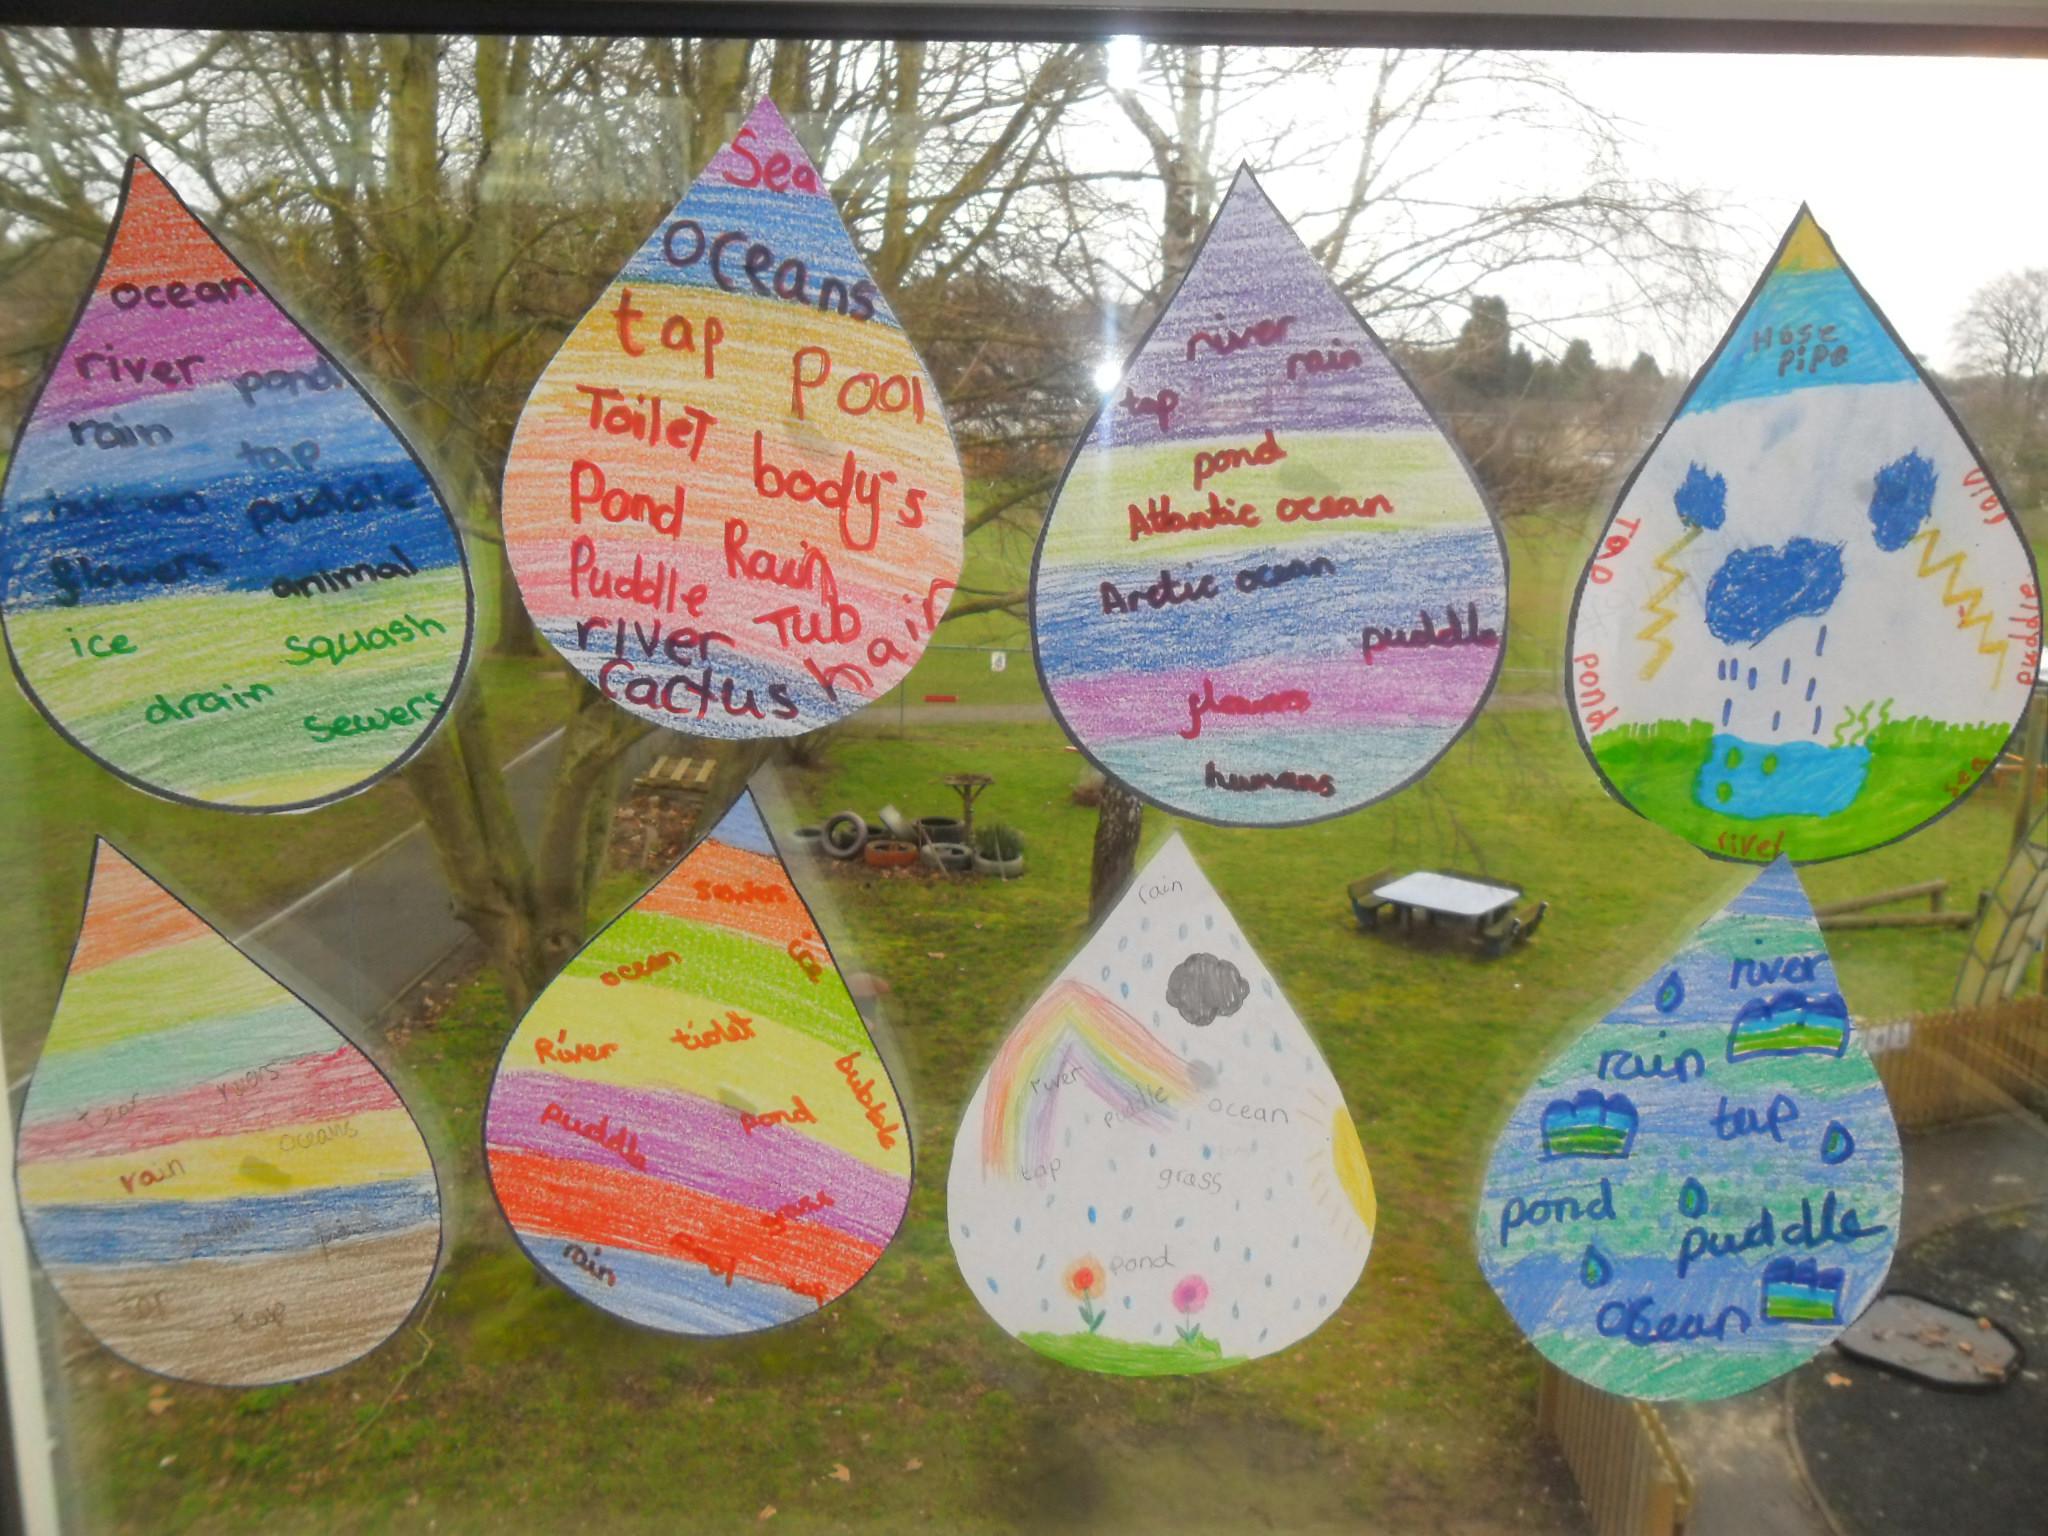 ocean
river pond
rain tap
puddle
flowers animal
ice squash
drain sewers
Sea
oceans
tap pool
Toilet body's
Pond Rain
Puddle Tub hair
river
Cactus
river
rain
tap
pond
Atlantic ocean
Arctic ocean
puddle
flowers
humans
Hose
pipe
Tap rain
pond puddle
sea
river
tear rivers
rain oceans
tap
sewers
ice
ocean
River tiolet
bubble
puddle pond
rain
rain
river puddle ocean
tap grass
pond
river
rain
tap
pond
puddle
ocean